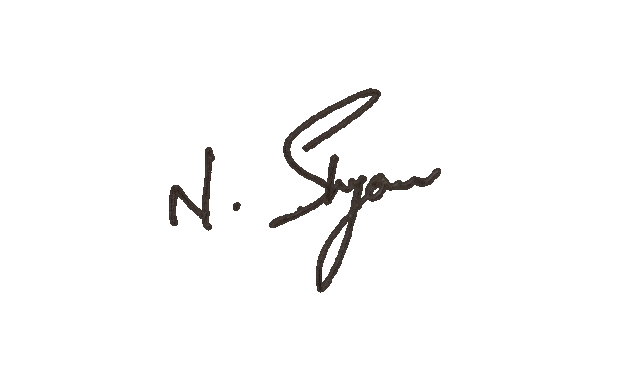 N. Shyam